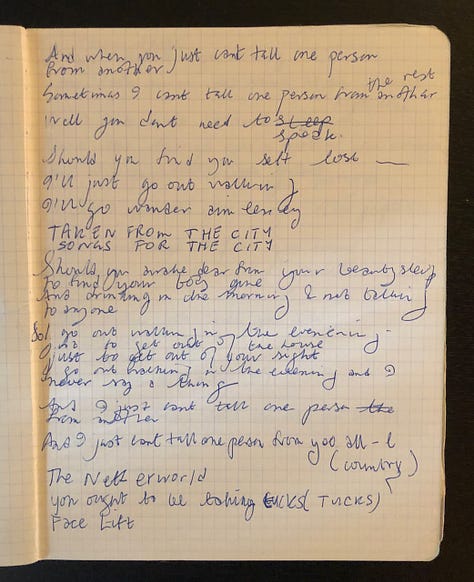 And when you just cant tell one person
from another
Sometimes I cant tell one person from another
the rest
Well you dont need to sleep
speak.
Should you find your self lost —
I'll just go out walking
I'll go wander aimlessly
TAKEN FROM THE CITY
SONGS FOR THE CITY
Should you awake dear from your beauty sleep
to find your boy gone
And drinking in the morning & not talking
to anyone
So I go out walking in the evening
to get out of the house
just to get out of your sight
I go out walking in the evening and I
never say a thing
And I just cant tell one person the
from another
And I just cant tell one person from you all -
(country)
The Netherworld
you ought to be taking TUCKS (TUCKS)
Face Lift